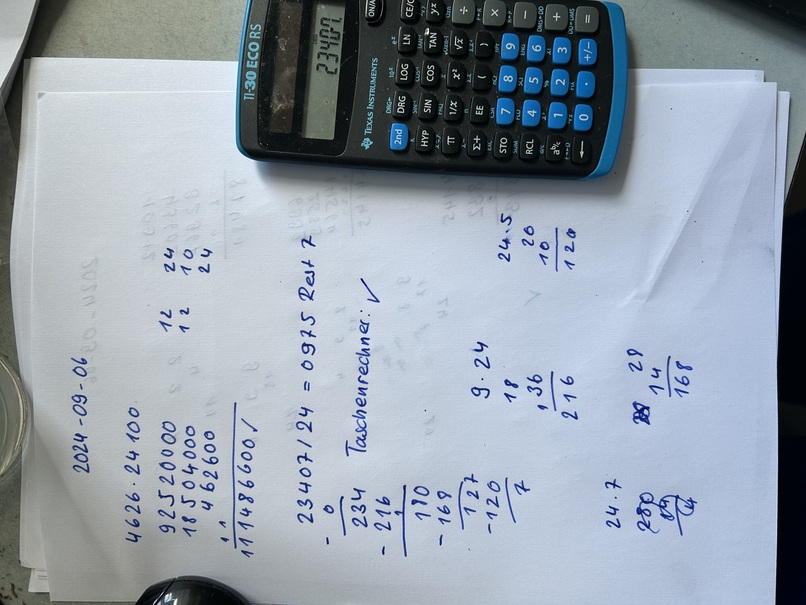 2024-09-06
4626·24100
92520000
18504000
462600
111486600 ✓
12
12
24
10
24
23407/24 = 0975 Rest 7
- 0
234
- 216
180
- 168
127
- 120
7
Taschenrechner: ✓
9·24
18
36
216
24.5
20
10
120
24.7
28
14
168
TI-30 ECO RS
TEXAS INSTRUMENTS
23407.
ON/AC
2nd
DRG
LOG
LN
CE/C
HYP
SIN
COS
TAN
yx
π
1/x
x²
√x
÷
Σ+
EE
(
)
×
STO
7
8
9
−
RCL
4
5
6
+
ab/c
1
2
3
=
←
0
.
+/−